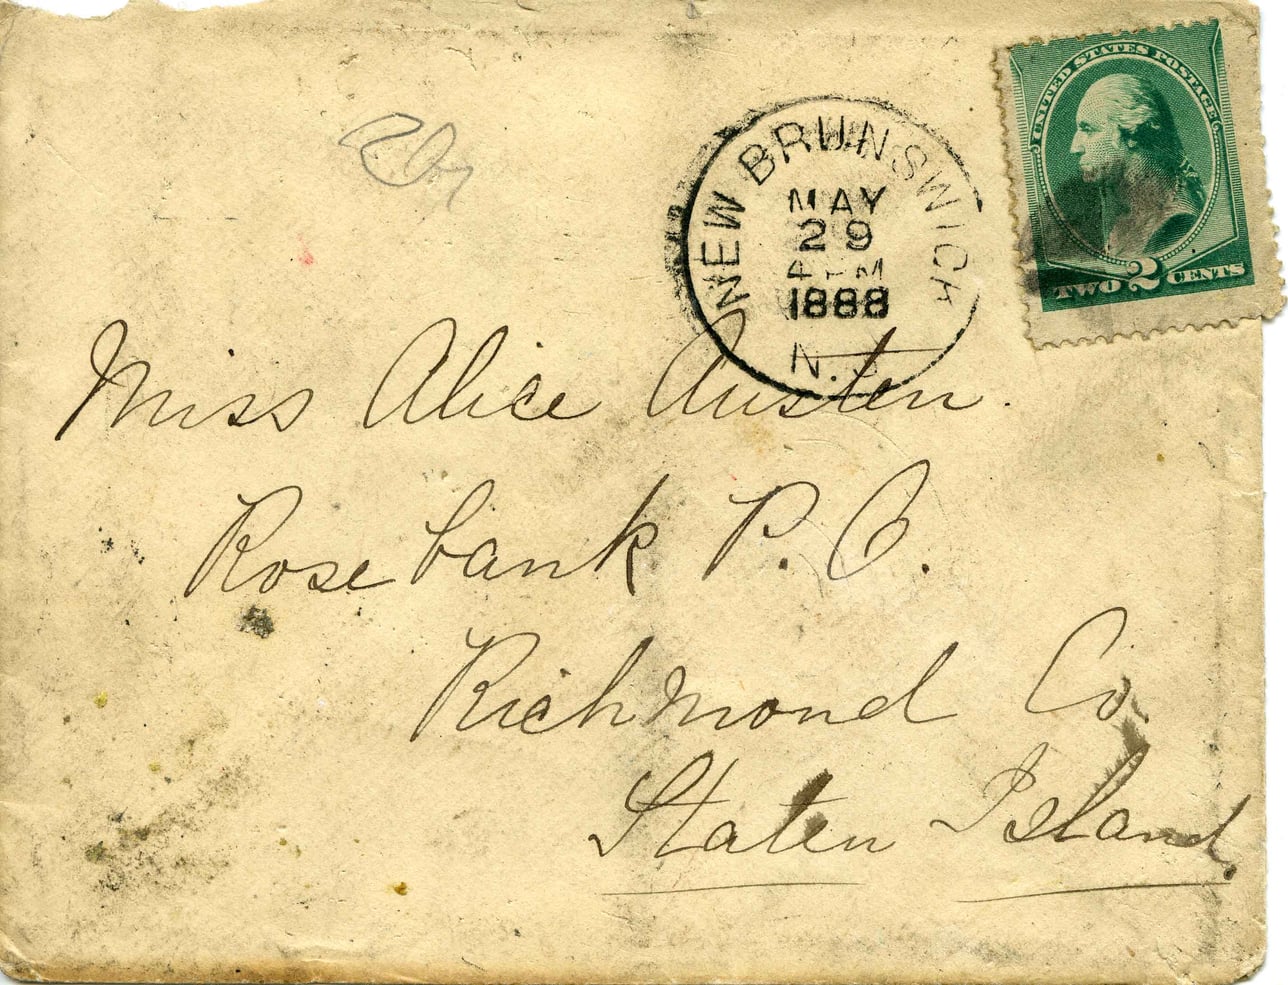 UNITED STATES POSTAGE
TWO 2 CENTS
NEW BRUNSWICK
MAY
29
4 PM
1888
N.J.
Miss Alice Austen.
Rosebank P. O.
Richmond Co.
Staten Island.